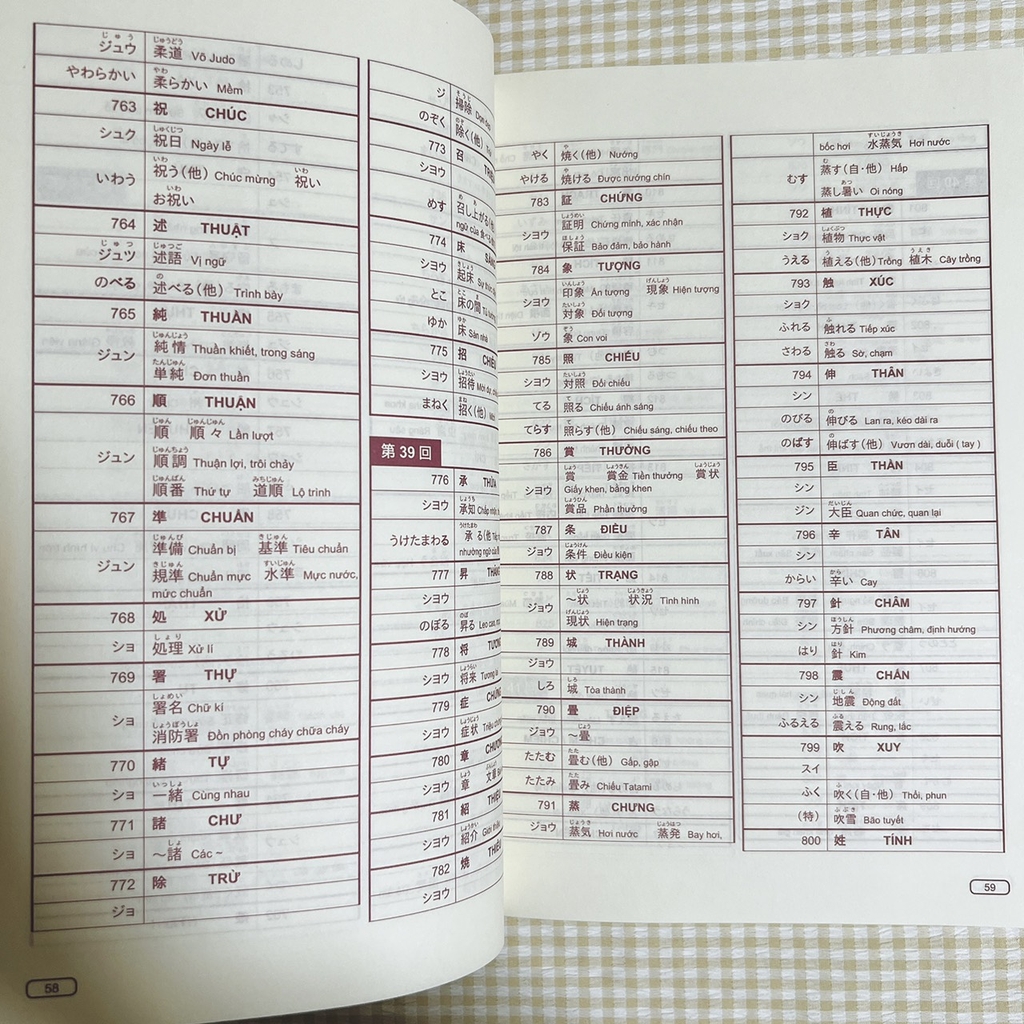 ジュウ 柔道 Võ Judo
やわらかい 柔らかい Mềm
763 祝 CHÚC
シュク 祝日 Ngày lễ
いわう 祝う(他) Chúc mừng 祝い
お祝い
764 述 THUẬT
ジュツ 述語 Vị ngữ
のべる 述べる(他) Trình bày
765 純 THUẦN
ジュン 純情 Thuần khiết, trong sáng
単純 Đơn thuần
766 順 THUẬN
ジュン 順 順々 Lần lượt
順調 Thuận lợi, trôi chảy
順番 Thứ tự 道順 Lộ trình
767 準 CHUẨN
ジュン 準備 Chuẩn bị 基準 Tiêu chuẩn
規準 Chuẩn mực 水準 Mực nước,
mức chuẩn
768 処 XỬ
ショ 処理 Xử lí
769 署 THỰ
ショ 署名 Chữ kí
消防署 Đồn phòng cháy chữa cháy
770 緒 TỰ
ショ 一緒 Cùng nhau
771 諸 CHƯ
ショ ～諸 Các ~
772 除 TRỪ
ジョ
58
ジ 掃除
のぞく 除く(他)
773 召
ショウ
めす 召し上がる
774 床
ショウ 起床
とこ 床の間
ゆか 床 Sàn nhà
775 招
ショウ 招待
まねく 招く(他)
第39回
776 承
ショウ 承知
うけたまわる 承る
777 昇
ショウ
のぼる 昇る
778 将
ショウ 将来
779 症
ショウ 症状
780 章
ショウ 章 文章
781 紹
ショウ 紹介
782 焼
ショウ
やく 焼く(他) Nướng
やける 焼ける Được nướng chín
783 証 CHỨNG
ショウ 証明 Chứng minh, xác nhận
保証 Bảo đảm, bảo hành
784 象 TƯỢNG
ショウ 印象 Ấn tượng 現象 Hiện tượng
対象 Đối tượng
ゾウ 象 Con voi
785 照 CHIẾU
ショウ 対照 Đối chiếu
てる 照る Chiếu ánh sáng
てらす 照らす(他) Chiếu sáng, chiếu theo
786 賞 THƯỞNG
ショウ 賞 賞金 Tiền thưởng 賞状
Giấy khen, bằng khen
賞品 Phần thưởng
787 条 ĐIỀU
ジョウ 条件 Điều kiện
788 状 TRẠNG
ジョウ ～状 状況 Tình hình
現状 Hiện trạng
789 城 THÀNH
ジョウ
しろ 城 Tòa thành
790 畳 ĐIỆP
ジョウ ～畳
たたむ 畳む(他) Gấp, gập
たたみ 畳み Chiếu Tatami
791 蒸 CHƯNG
ジョウ 蒸気 Hơi nước 蒸発 Bay hơi,
bốc hơi 水蒸気 Hơi nước
むす 蒸す(自・他) Hấp
蒸し暑い Oi nóng
792 植 THỰC
ショク 植物 Thực vật
うえる 植える(他) Trồng 植木 Cây trồng
793 触 XÚC
ショク
ふれる 触れる Tiếp xúc
さわる 触る Sờ, chạm
794 伸 THÂN
シン
のびる 伸びる Lan ra, kéo dài ra
のばす 伸ばす(他) Vươn dài, duỗi ( tay )
795 臣 THẦN
シン
ジン 大臣 Quan chức, quan lại
796 辛 TÂN
シン
からい 辛い Cay
797 針 CHÂM
シン 方針 Phương châm, định hướng
はり 針 Kim
798 震 CHẤN
シン 地震 Động đất
ふるえる 震える Rung, lắc
799 吹 XUY
スイ
ふく 吹く(自・他) Thổi, phun
(特) 吹雪 Bão tuyết
800 姓 TÍNH
59